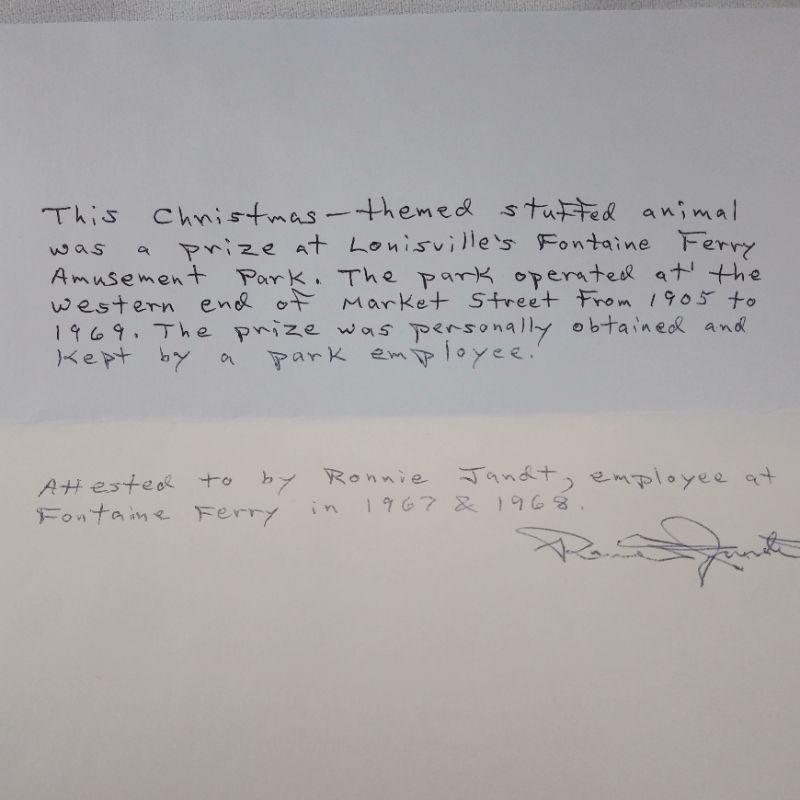 This Christmas-themed stuffed animal
was a prize at Louisville's Fontaine Ferry
Amusement Park. The park operated at the
western end of Market Street from 1905 to
1969. The prize was personally obtained and
kept by a park employee.
Attested to by Ronnie Jandt, employee at
Fontaine Ferry in 1967 & 1968.
Ronnie Jandt